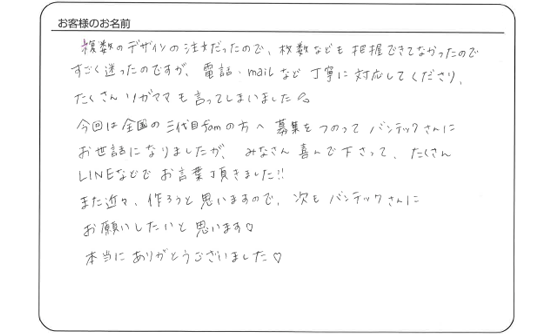 お客様のお名前
複数のデザインの注文だったので、枚数なども把握できてなかったので
すごく迷ったのですが、電話・mailなど丁寧に対応してくださり、
たくさんワガママも言ってしまいました
今回は全国の三代目famの方へ募集をつのってバンテックさんに
お世話になりましたが、みなさん喜んで下さって、たくさん
LINEなどでお言葉頂きました!!
また近々、作ろうと思いますので、次もバンテックさんに
お願いしたいと思います♡
本当にありがとうございました♡